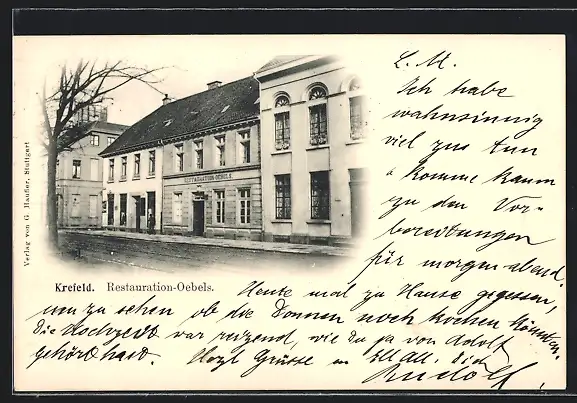 L. M.
Ich habe
wahnsinnig
viel zu tun
u komme kaum
zu den Vor-
bereitungen
für morgen abend.
Verlag von G. Haußer, Stuttgart
RESTAURATION-OEBELS.
Krefeld. Restauration-Oebels.
Heute mal zu Hause gegessen,
um zu sehen ob die Donnen noch kochen könnten.
Die Hochzeit war reizend, wie Du ja von Adolf
gehört hast. Herzl Grüsse an All All. Dein
Rudolf